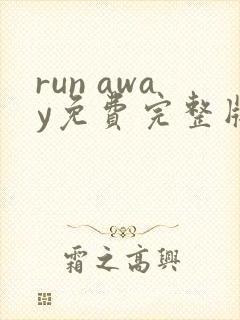 run awa
y免費完整版
霜之高興